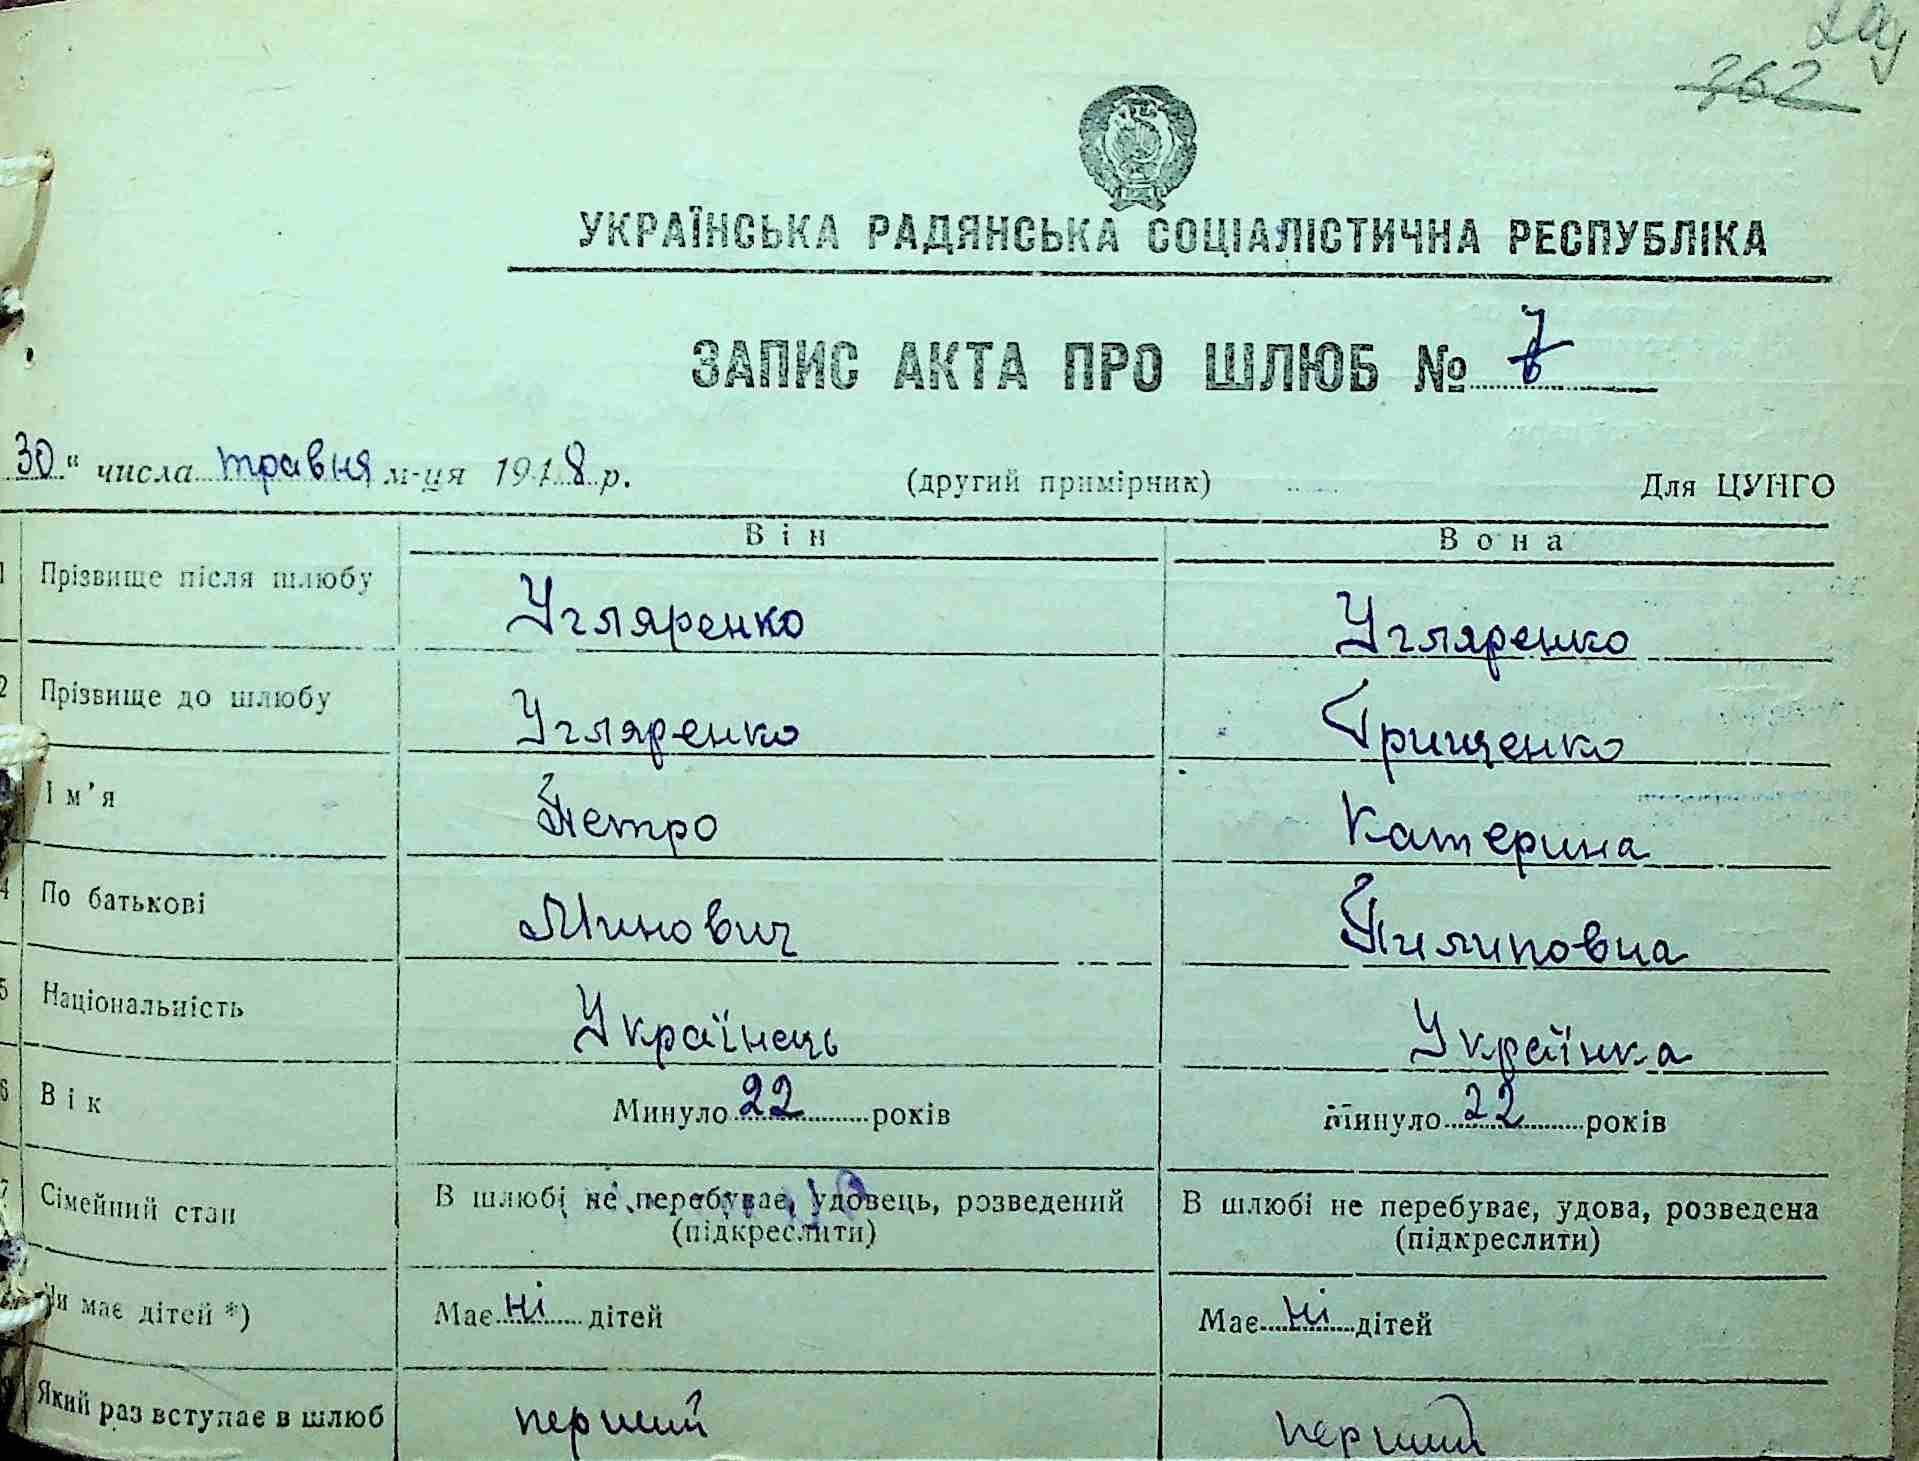 262
УКРАЇНСЬКА РАДЯНСЬКА СОЦІАЛІСТИЧНА РЕСПУБЛІКА
ЗАПИС АКТА ПРО ШЛЮБ № 7
30 " числа травня м-ця 1948 р. (другий примірник) Для ЦУНГО
Він Вона
1 Прізвище після шлюбу Угляренко Угляренко
2 Прізвище до шлюбу Угляренко Грищенко
Ім'я Петро Катерина
4 По батькові Минович Пилиповна
5 Національність Українець Українка
6 Вік Минуло 22 років Минуло 22 років
7 Сімейний стан В шлюбі не перебуває, удовець, розведений В шлюбі не перебуває, удова, розведена
(підкреслити) (підкреслити)
Чи має дітей *) Має ні дітей Має ні дітей
9 Який раз вступає в шлюб перший перший